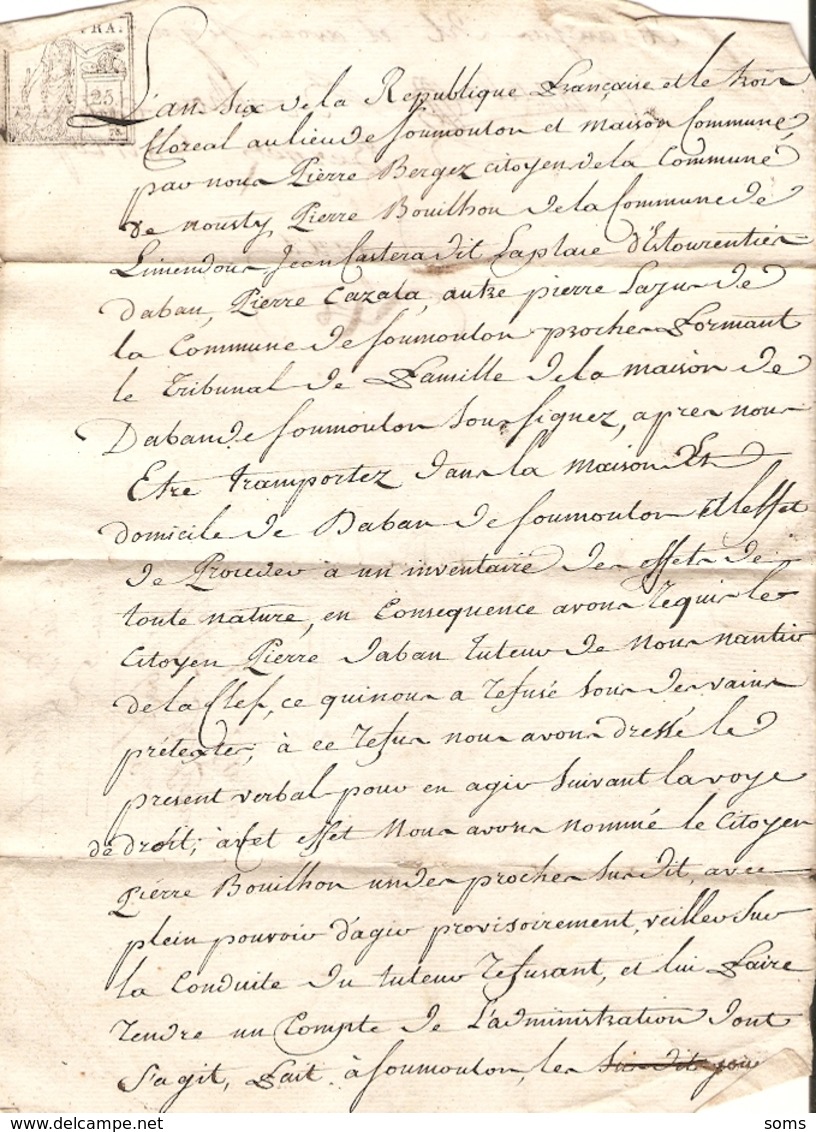 FRA.
25
L'an six de la Republique française et le trois
floreal au lieu de soumoulon et maison Commune,
par nous Pierre Bergez citoyen de la Commune
de nousty, Pierre Bouilhon de la Commune de
Limendous Jean Castera dit Laplaie d'Estourentier
daban, Pierre Cazala, autre pierre Laju de
la Commune de soumoulon proches formant
le tribunal de famille de la maison de
Daban de soumoulon sous signez, apres nous
Etre transportez dans la maison Et
domicile de Daban de soumoulon leffet
de Proceder a un inventaire des effets de
toute nature, en Consequence avons requis le
Citoyen Pierre daban tuteur de nous nantir
de la Clef, ce qui nous a refusé sous des vains
prétextes, à ce refus nous avons dressé le
present verbal pour en agir suivant la voye
de droit; à cet effet Nous avons nommé le Citoyen
Piérre Bouilhon un des proches susdit, avec
plein pouvoir d'agir provisoirement, veiller sur
la Conduite du tuteur refusant, et lui faire
rendre un Compte de L'administration dont
s'agit, fait à soumoulon, les susdit jour
soms